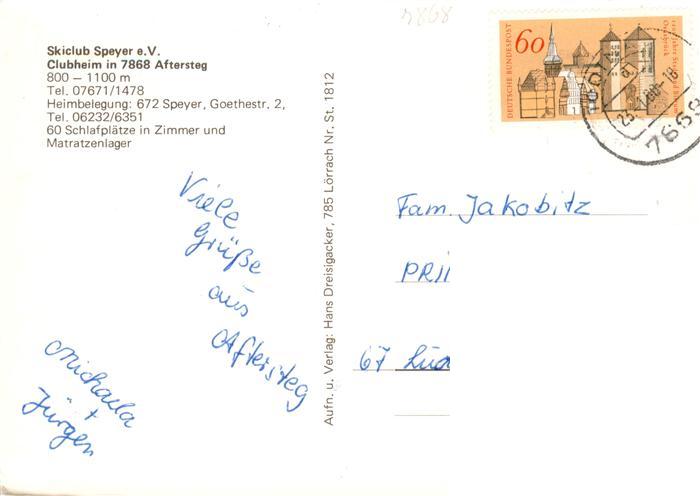 7868
Skiclub Speyer e.V.
Clubheim in 7868 Aftersteg
800 – 1100 m
Tel. 07671/1478
Heimbelegung: 672 Speyer, Goethestr. 2,
Tel. 06232/6351
60 Schlafplätze in Zimmer und
Matratzenlager
Viele
Grüße
aus
Aftersteg
Michaela
+
Jürgen
Aufn. u. Verlag: Hans Dreisigacker, 785 Lörrach Nr. St. 1812
DEUTSCHE BUNDESPOST
60
Osnabrück
Fam. Jakobitz
PRII
67 Lud